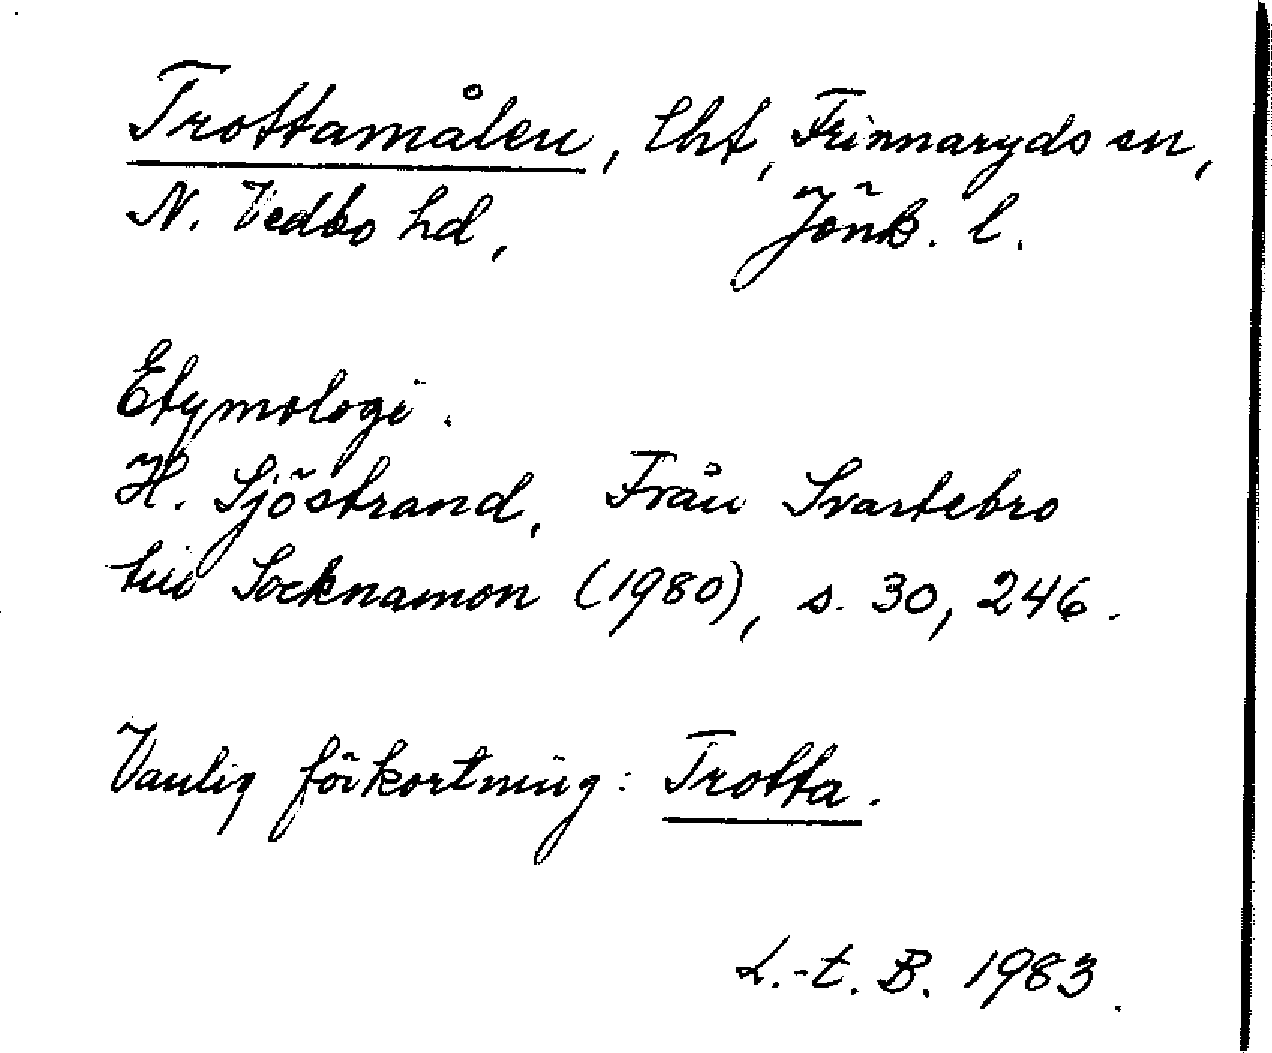 Trottamålen, lht, Frinnaryds sn,
N. Vedbo hd, Jönk. l.
Etymologi.
H. Sjöstrand, Från Svartebro
till Socknamon (1980), s. 30, 246.
Vanlig förkortning: Trotta.
L.-t. B. 1983.